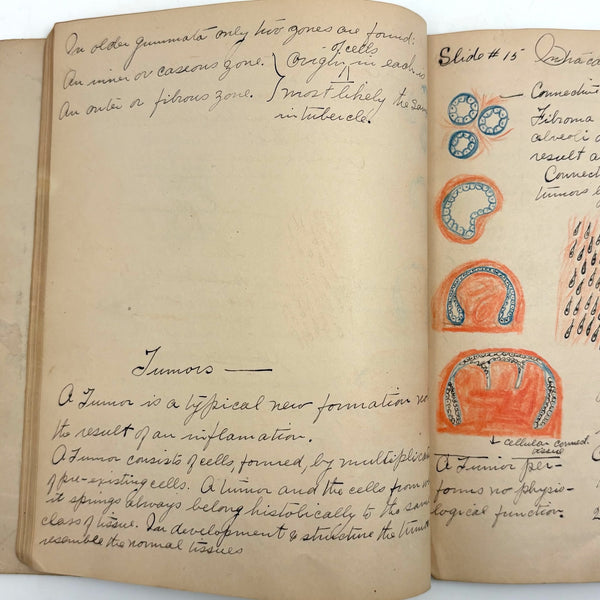 In older gummata only two zones are found:
An inner or caseous zone. } origin of cells in each is
An outer or fibrous zone. } most likely the same
in tubercle.
Tumors —
A Tumor is a typical new formation
the result of an inflamation.
A Tumor consists of cells, formed, by
of pre-existing cells. A tumor and the cells from
it springs always belong histolically to the same
class of tissue. In development & structure the
resemble the normal tissues
Slide # 15
Connective
Fibroma
alveoli
result a
Connect
tumors
cellular conned.
tissue
A Tumor per-
forms no physio-
logical function.